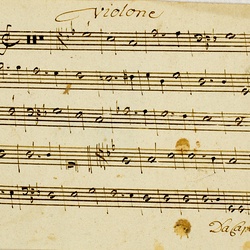 Violone
Da Capo